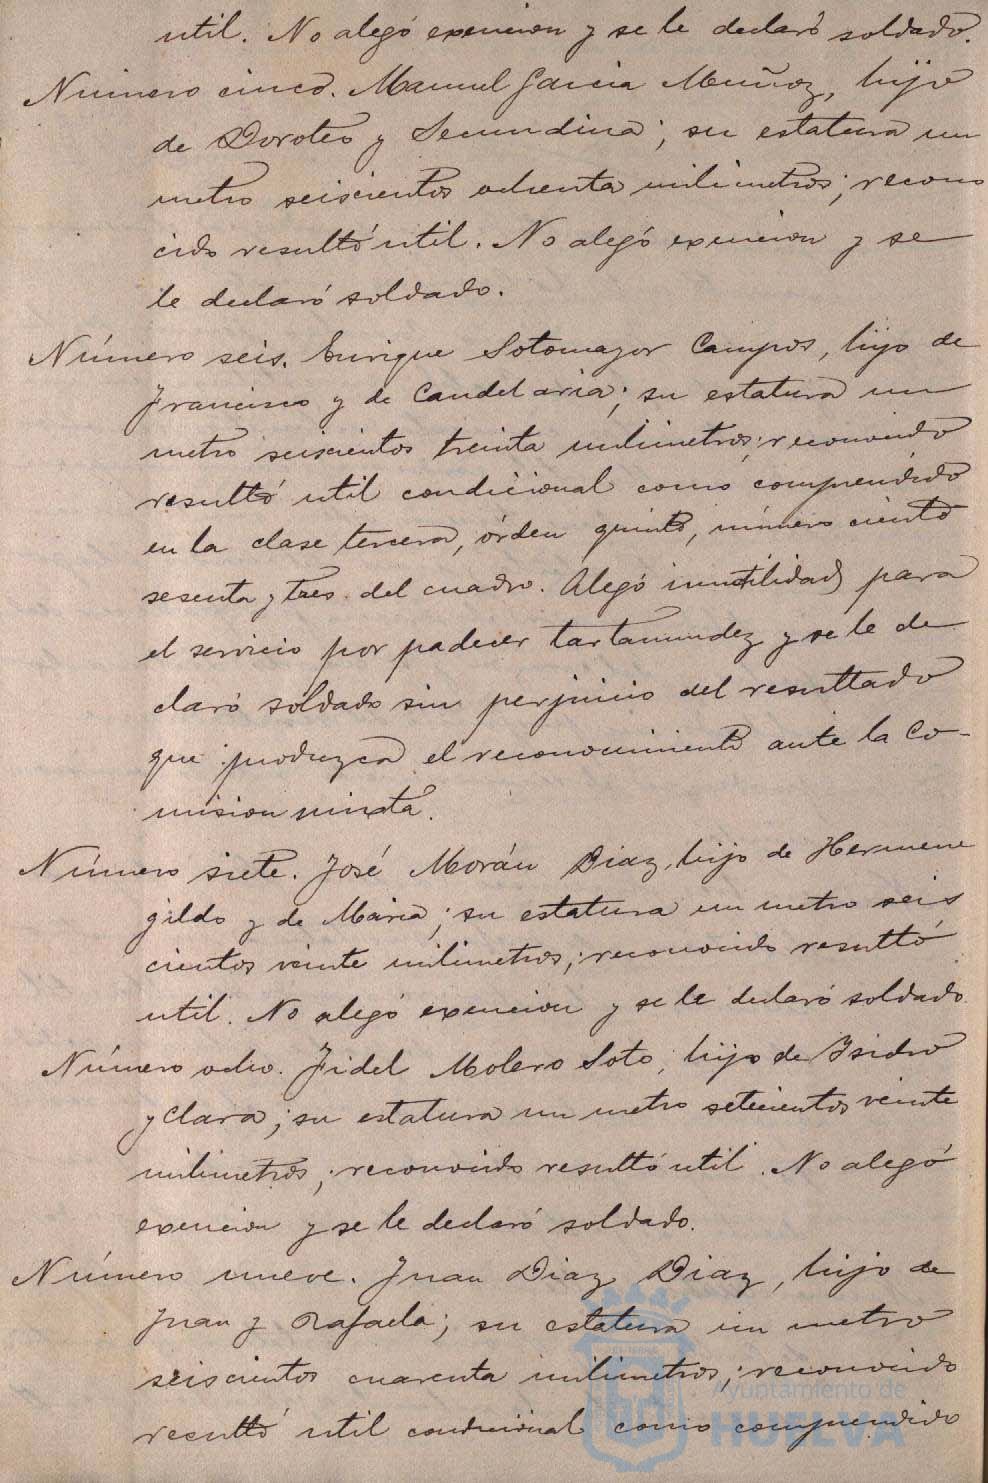 util. No alegó exencion y se le declaró soldado.
Número cinco. Manuel Garcia Muñoz, hijo
de Doroteo y Secundina; su estatura un
metro seiscientos ochenta milimetros; recono
cido resultó util. No alegó exencion y se
le declaró soldado.
Número seis. Enrique Sotomayor Campos, hijo de
Francisco y de Candelaria; su estatura un
metro seiscientos treinta milimetros; reconocido
resultó util condicional como comprendido
en la clase tercera, órden quinto, número ciento
sesenta y tres del cuadro. Alegó inutilidad para
el servicio por padecer tartamudez y se le de
claró soldado sin perjuicio del resultado
que produzca el reconocimiento ante la Co-
mision mixta.
Número siete. José Morán Diaz, hijo de Hermene
gildo y de Maria; su estatura un metro seis
cientos veinte milimetros; reconocido resultó
util. No alegó exencion y se le declaró soldado.
Número ocho. Fidel Molero Soto, hijo de Isidro
y Clara; su estatura un metro setecientos veinte
milimetros; reconocido resultó util. No alegó
exencion y se le declaró soldado.
Número nueve. Juan Diaz Diaz, hijo de
Juan y Rafaela; su estatura un metro
seiscientos cuarenta milimetros; reconocido
resultó util condicional como comprendido
Ayuntamiento de
HUELVA